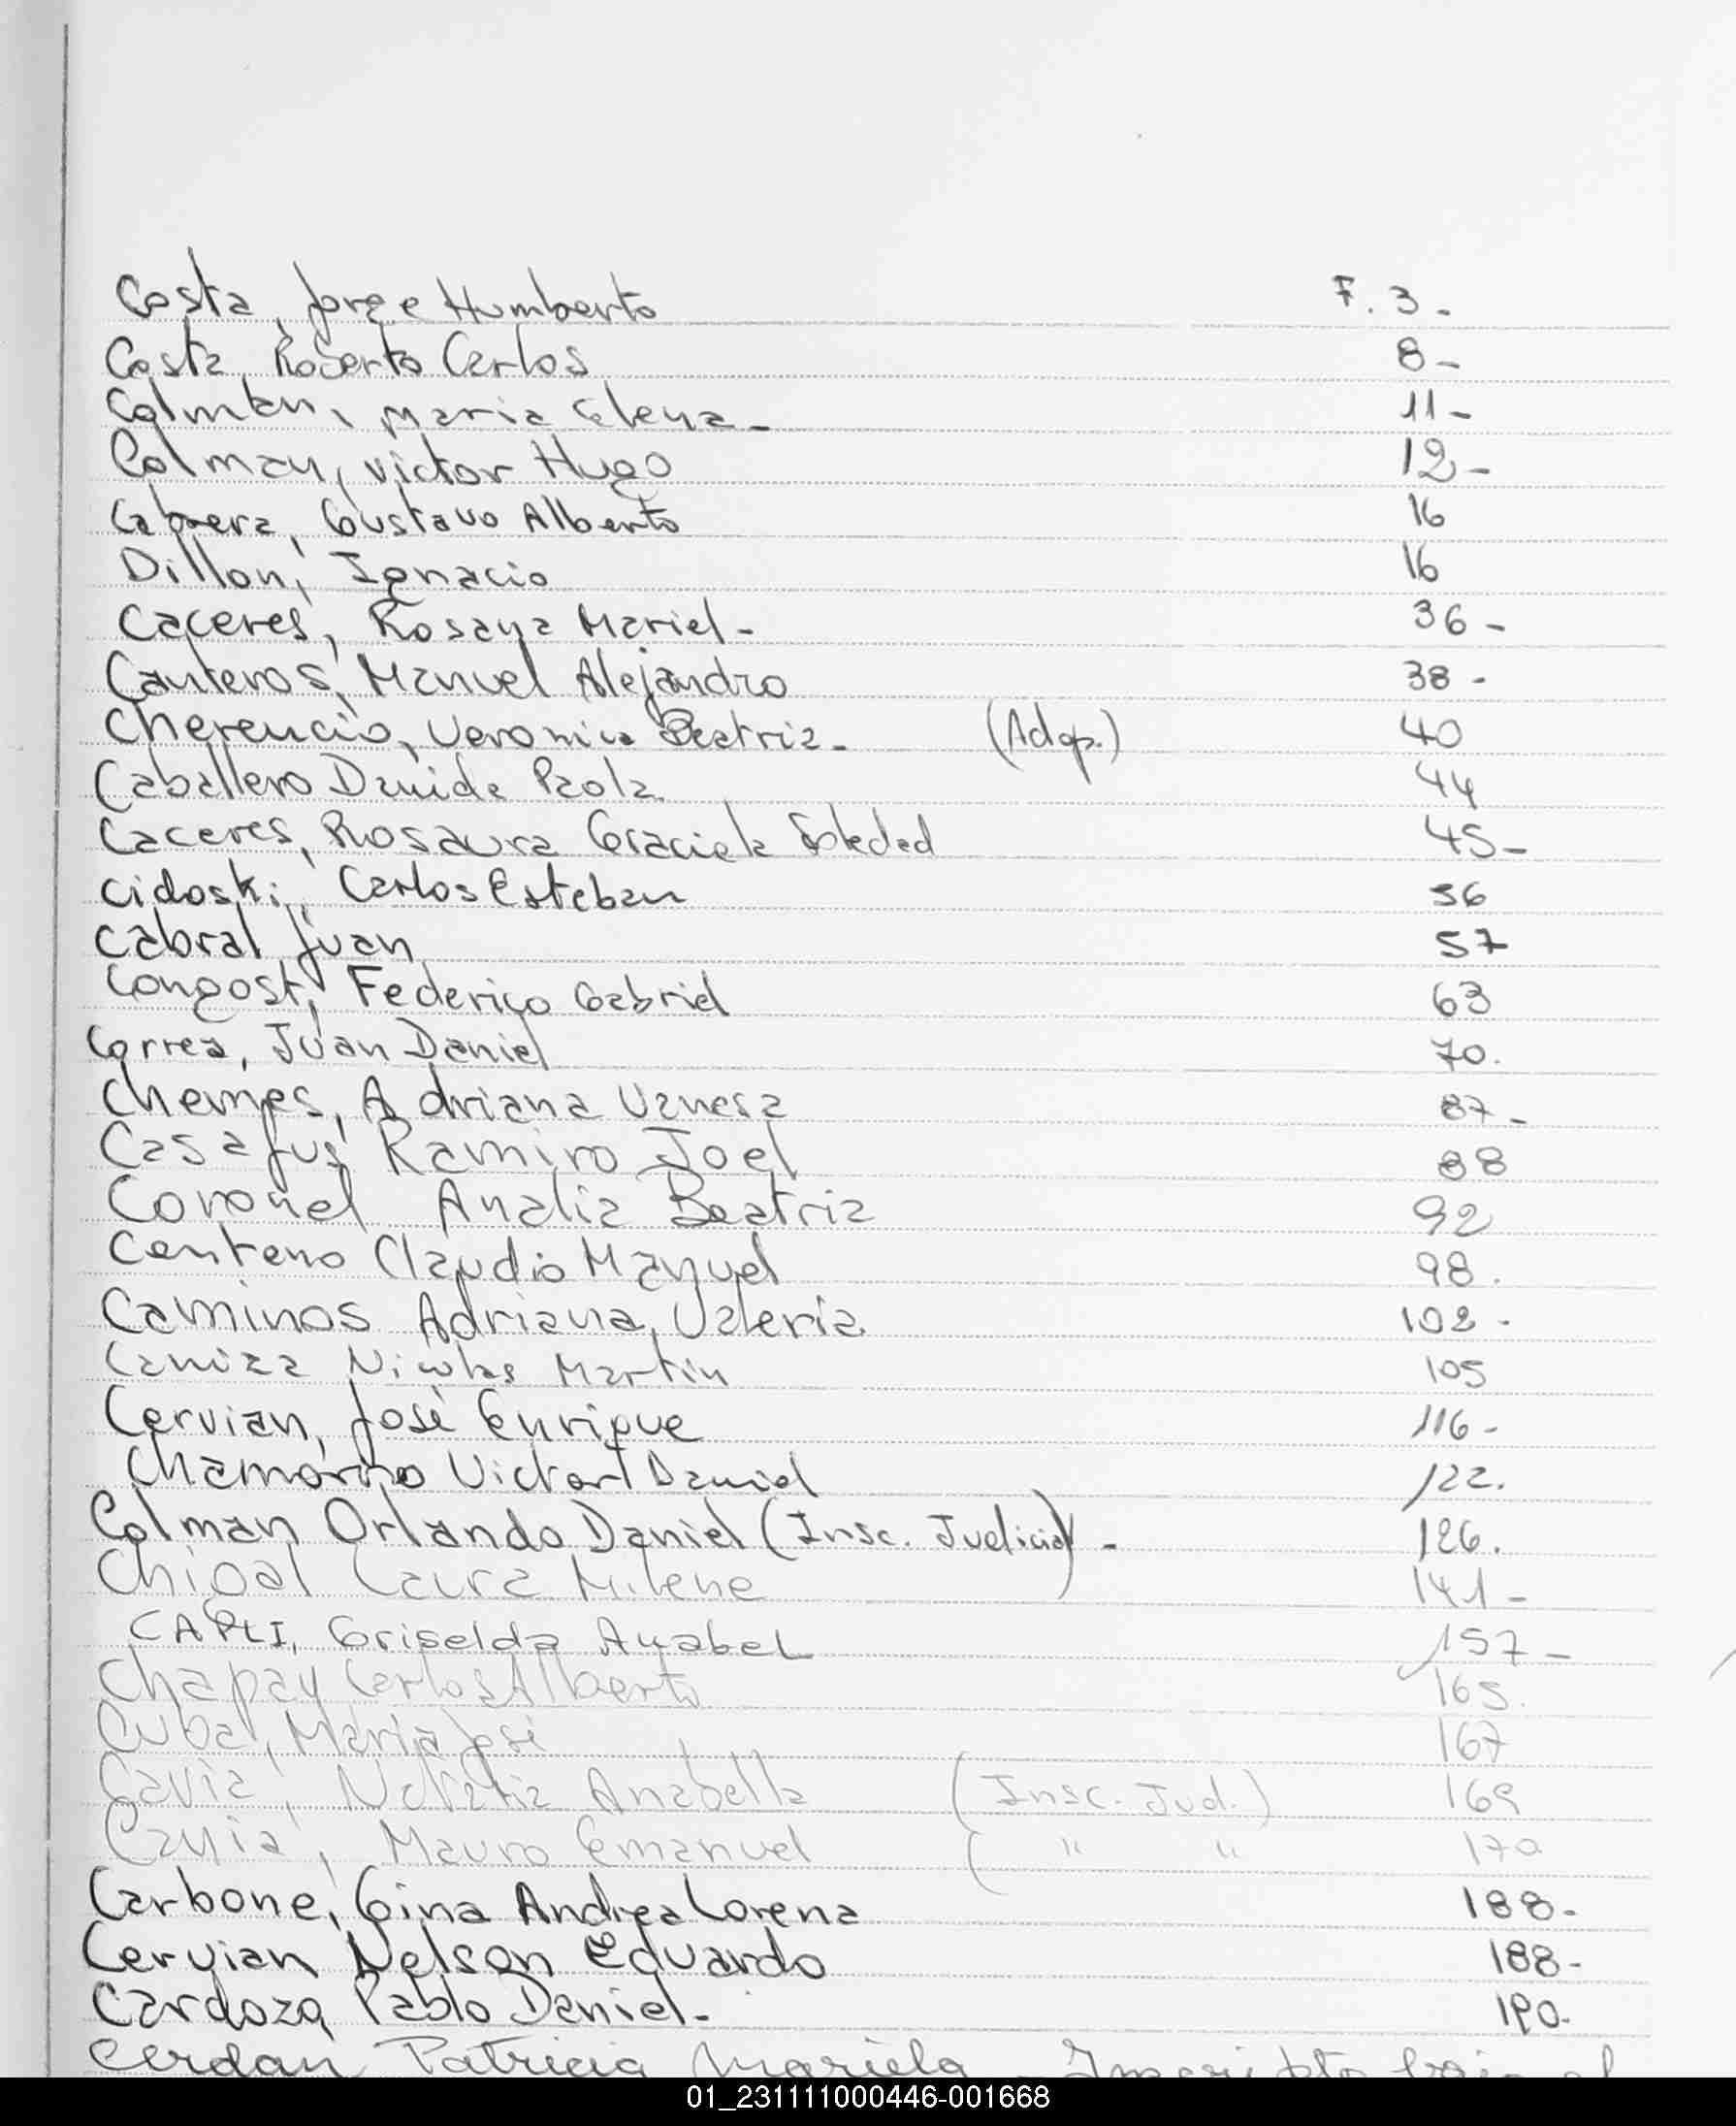 Costa, Jorge Humberto F. 3.-
Costa, Roberto Carlos 8-
Colman, Maria Elena- 11-
Colman, Victor Hugo 12-
Cabrera, Gustavo Alberto 16
Dillon, Ignacio 16
Caceres, Rosana Mariel- 36-
Canteros, Manuel Alejandro 38-
Cherencio, Veronica Beatriz- (Adop.) 40
Caballero Daniela Paola 44
Caceres, Rosaura Graciela Soledad 45-
Cidoski, Carlos Esteban 56
Cabral Juan 57
Congost, Federico Gabriel 63
Correa, Juan Daniel 70.
Chemes, Adriana Vanesa 87-
Casafus, Ramiro Joel 88
Coronel Analia Beatriz 92
Centeno Claudio Manuel 98.
Caminos Adriana Valeria 102-
Caniza Nicolas Martin 105
Cervian, José Enrique 116-
Chamorro Victor Daniel 122.
Colman Orlando Daniel (Insc. Judicial)- 126.
Laura Milene 141-
Griselda Anabel 157-
Chapay Carlos Alberto 165.
Cubal, Maria José 167
Cavia, Natalia Anabella (Insc. Jud.) 169
Cavia, Mauro Emanuel ( " " 170
Carbone, Gina Andrea Lorena 188-
Cervian Nelson Eduardo 188-
Cardozo, Pablo Daniel- 190-
Cerdan Patricia Mariela - Inscripto bajo el
01_231111000446-001668